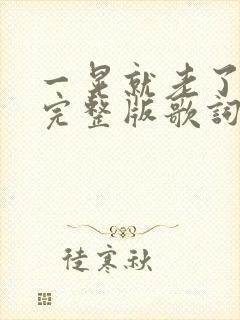 一晃就老了
完整版歌詞
徒寒秋